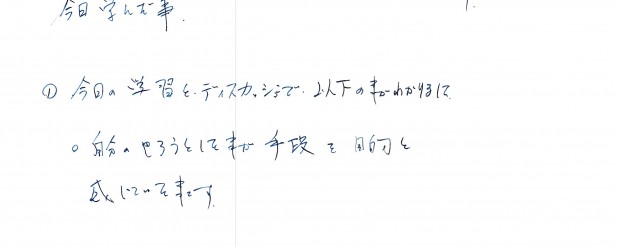 今日学んだ事.
① 今日の学習とディスカッションで、以下の事がわかりました
○ 自分のやろうとした事が手段を目的と
感じていた事です。